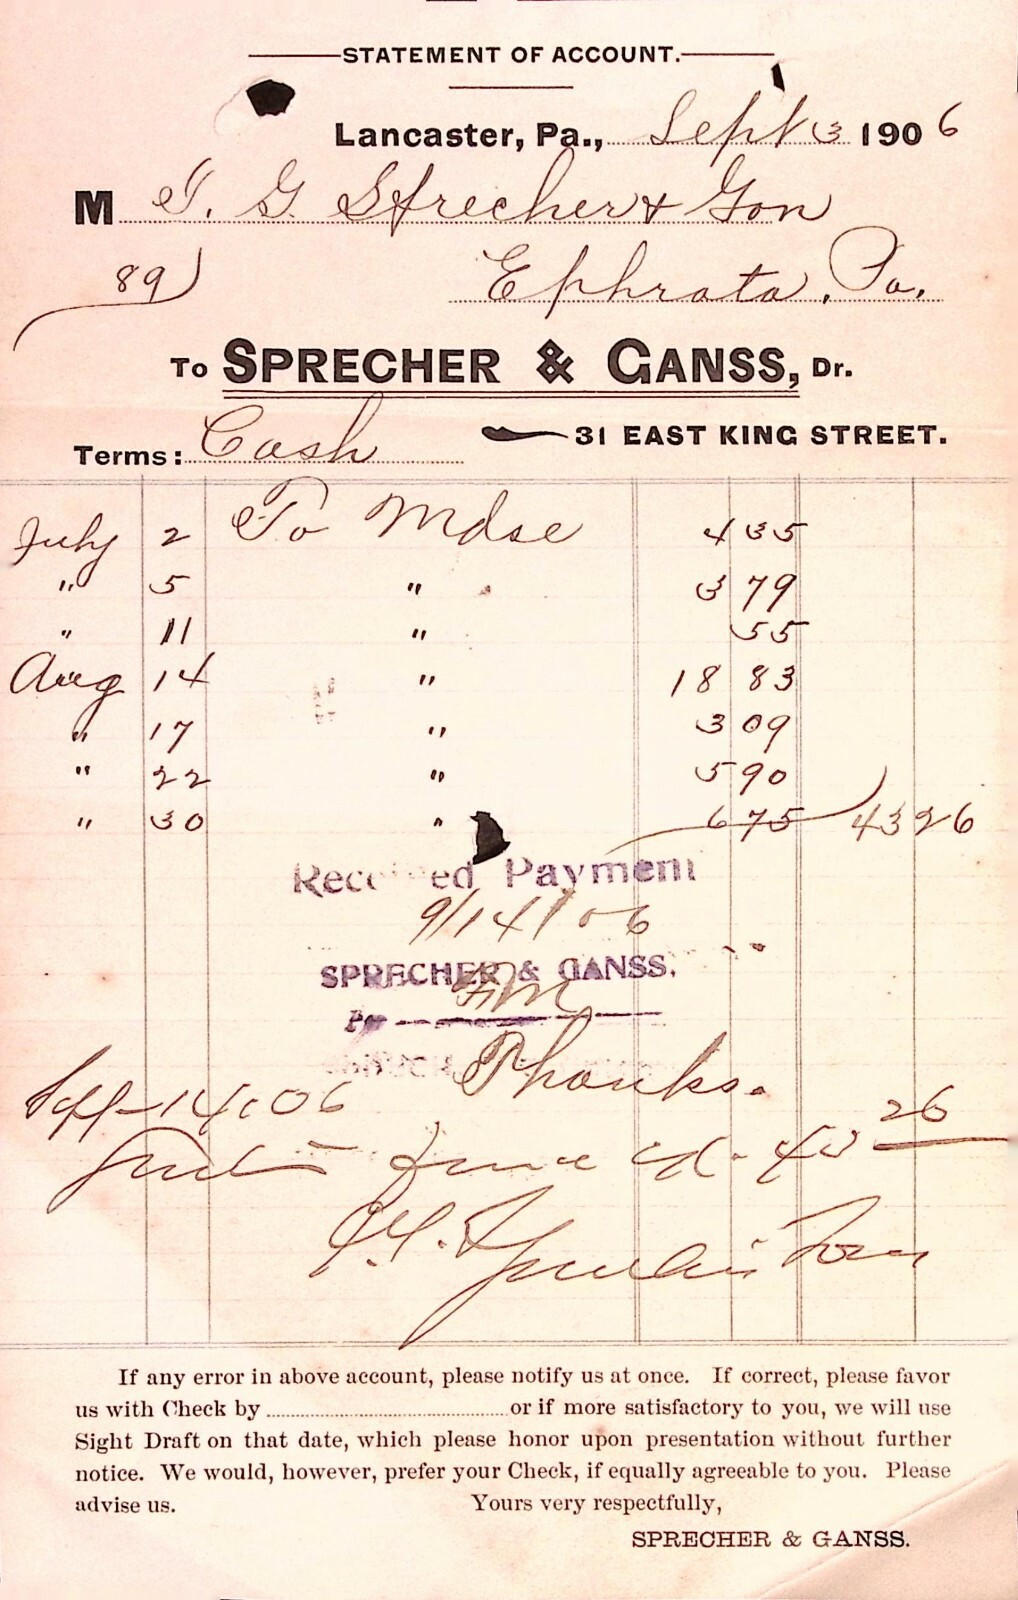 STATEMENT OF ACCOUNT.
Lancaster, Pa., Sept 3 1906
M T. G. Sprecher & Son
89) Ephrata, Pa.
To SPRECHER & GANSS, Dr.
Terms: Cash 31 EAST KING STREET.
July 2 To Mdse 4 35
" 5 " 3 79
" 11 " 55
Aug 14 " 18 83
" 17 " 3 09
" 22 " 5 90
" 30 " 6 75 43 26
Received Payment
9/14/06
SPRECHER & GANSS.
Per
Thanks.
Sept 14, 06
43 26
If any error in above account, please notify us at once. If correct, please favor
us with Check by or if more satisfactory to you, we will use
Sight Draft on that date, which please honor upon presentation without further
notice. We would, however, prefer your Check, if equally agreeable to you. Please
advise us. Yours very respectfully,
SPRECHER & GANSS.